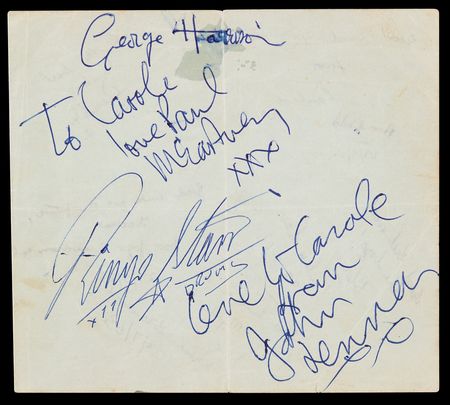 George Harrison
To Carole
love Paul
McCartney
xxx
Ringo Starr
xxx
DRUMS
Love to Carole
from
John
Lennon
xx